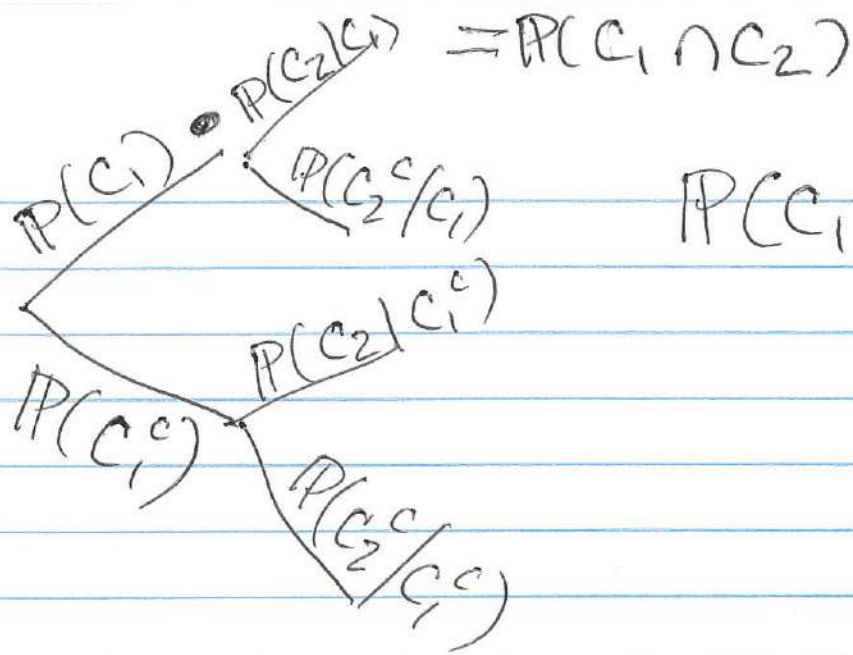 ℙ(C₁) • ℙ(C₂|C₁) = ℙ(C₁ ∩ C₂)
ℙ(C₂ᶜ/C₁)
ℙ(C₁
ℙ(C₂|C₁ᶜ)
ℙ(C₁ᶜ)
ℙ(C₂ᶜ/C₁ᶜ)